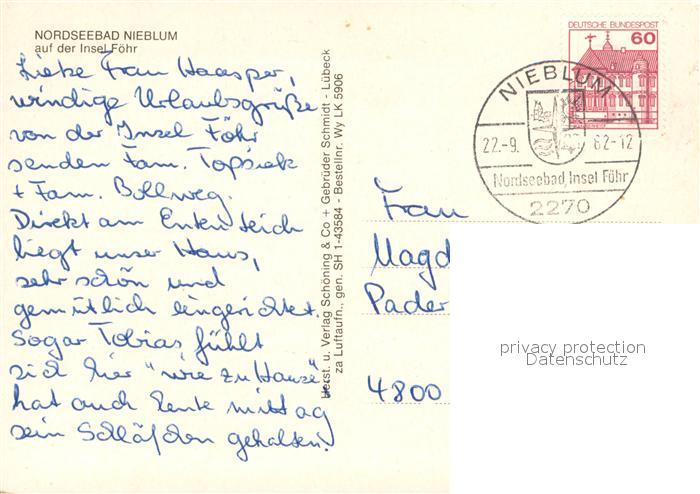 NORDSEEBAD NIEBLUM
auf der Insel Föhr
Liebe Frau Haasper,
windige Urlaubsgrüße
von der Insel Föhr
senden Fam. Topsiek
+ Fam. Bollweg.
Direkt am Ententeich
liegt unser Haus,
sehr schön und
gemütlich eingerichtet.
Sogar Tobias fühlt
sich hier "wie zu Hause",
hat auch heute mittag
sein Schläfchen gehalten.
Herst. u. Verlag Schöning & Co + Gebrüder Schmidt - Lübeck
za Luftaufn., gen. SH 1-43584 - Bestellnr. Wy LK 5906
DEUTSCHE BUNDESPOST
60
NIEBLUM
22.-9. 82-12
Nordseebad, Insel Föhr
2270
Frau
Magd
Pader
4800
privacy protection
Datenschutz